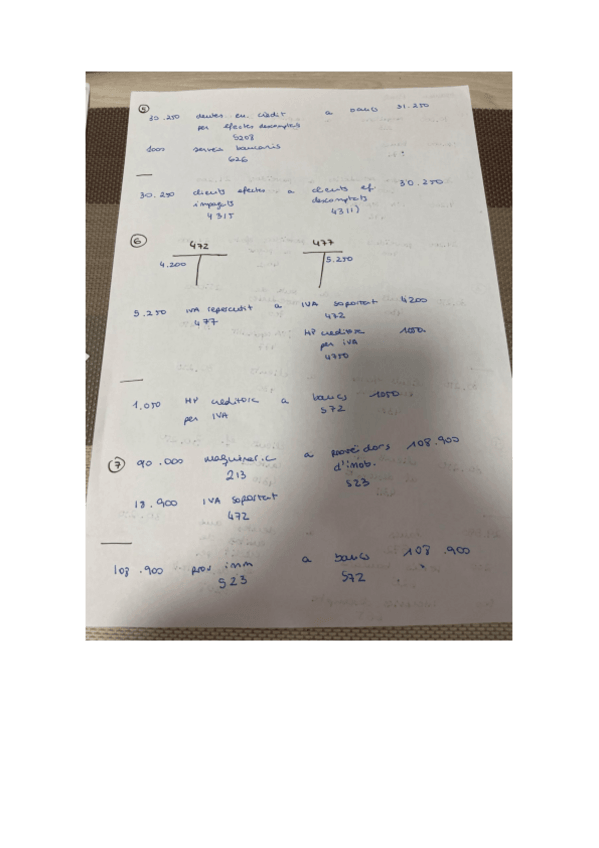 5
30.250 deutes en. crèdit a bancs 31.250
per efectes descomptats
5208
1000 serveis bancaris
626
30.250 clients efectes a clients ef. 30.250
impagats descomptats
4315 4311)
6
472 477
4.200 5.250
5.250 IVA repercutit a IVA soportat 4200
477 472
HP creditora 1050.
per iva
4750
1,050 HP creditora a bancs 1050
per IVA 572
7 90.000 maquinaria a proveïdors 108.900
213 d'imob.
523
18.900 IVA soportat
472
108.900 prov imm a bancs 108.900
523 572